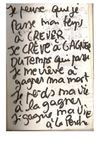 Je pense que je
passe mon temps
à CREVER
Je CRÈVE à GAGNER
DU Temps qui passe
Je me rêve à
gagner ma mort
Je perds ma vie
à la gagner
Je gagne ma vie
à la perdre